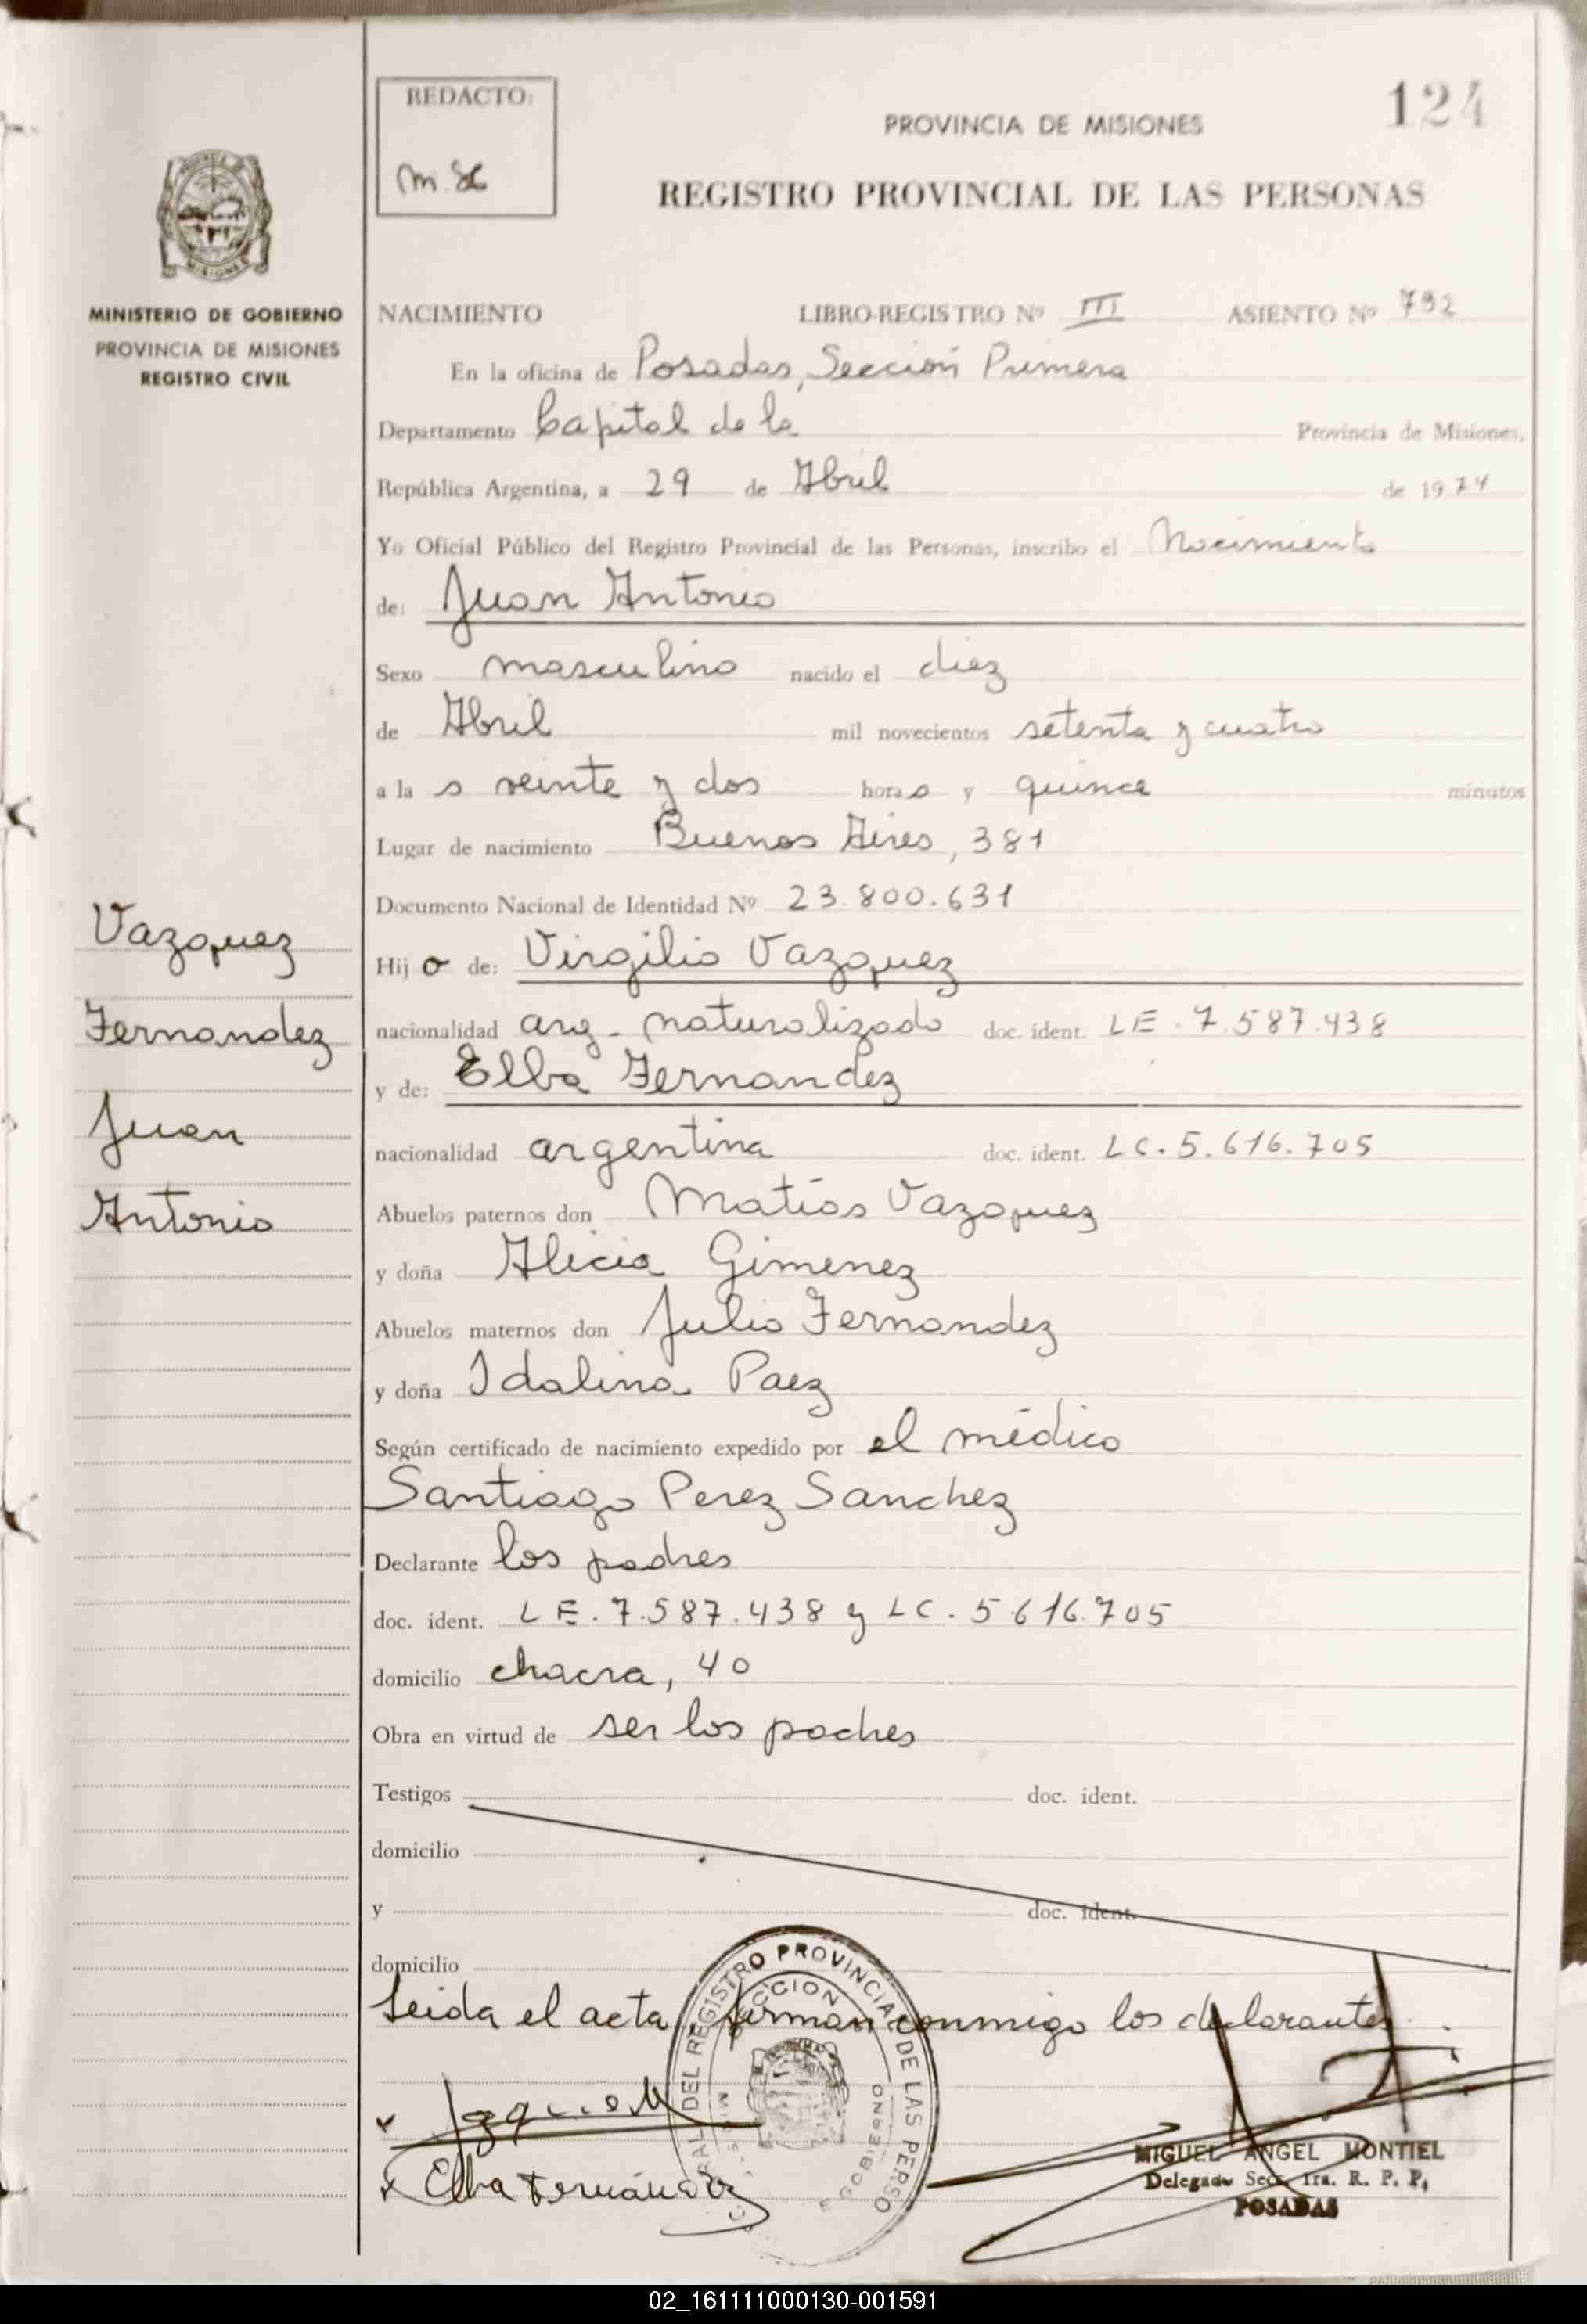 REDACTO:
PROVINCIA DE MISIONES
124
REGISTRO PROVINCIAL DE LAS PERSONAS
MINISTERIO DE GOBIERNO
PROVINCIA DE MISIONES
REGISTRO CIVIL
NACIMIENTO LIBRO-REGISTRO Nº III ASIENTO Nº 792
En la oficina de Posadas, Sección Primera
Departamento Capital de la Provincia de Misiones,
República Argentina, a 29 de Abril de 1974
Yo Oficial Público del Registro Provincial de las Personas, inscribo el Nacimiento
de: Juan Antonio
Sexo masculino nacido el diez
de Abril mil novecientos setenta y cuatro
a la s veinte y dos hora s y quince minutos
Lugar de nacimiento Buenos Aires, 381
Documento Nacional de Identidad Nº 23.800.631
Vazquez
Hij o de: Virgilio Vazquez
Fernandez
nacionalidad arg. naturalizado doc. ident. LE. 7.587.438
y de: Elba Fernandez
Juan
nacionalidad argentina doc. ident. LC. 5.616.705
Antonio
Abuelos paternos don Matías Vazquez
y doña Alicia Gimenez
Abuelos maternos don Julio Fernandez
y doña Idalina Paez
Según certificado de nacimiento expedido por el médico
Santiago Perez Sanchez
Declarante los padres
doc. ident. LE. 7.587.438 y LC. 5.616.705
domicilio chacra, 40
Obra en virtud de ser los padres
Testigos doc. ident.
domicilio
y doc. ident.
domicilio
Leida el acta firman conmigo los declarantes.
Elba Fernández
MIGUEL ANGEL MONTIEL
Delegado Secc. 1ra. R. P. P.
POSADAS
02_161111000130-001591